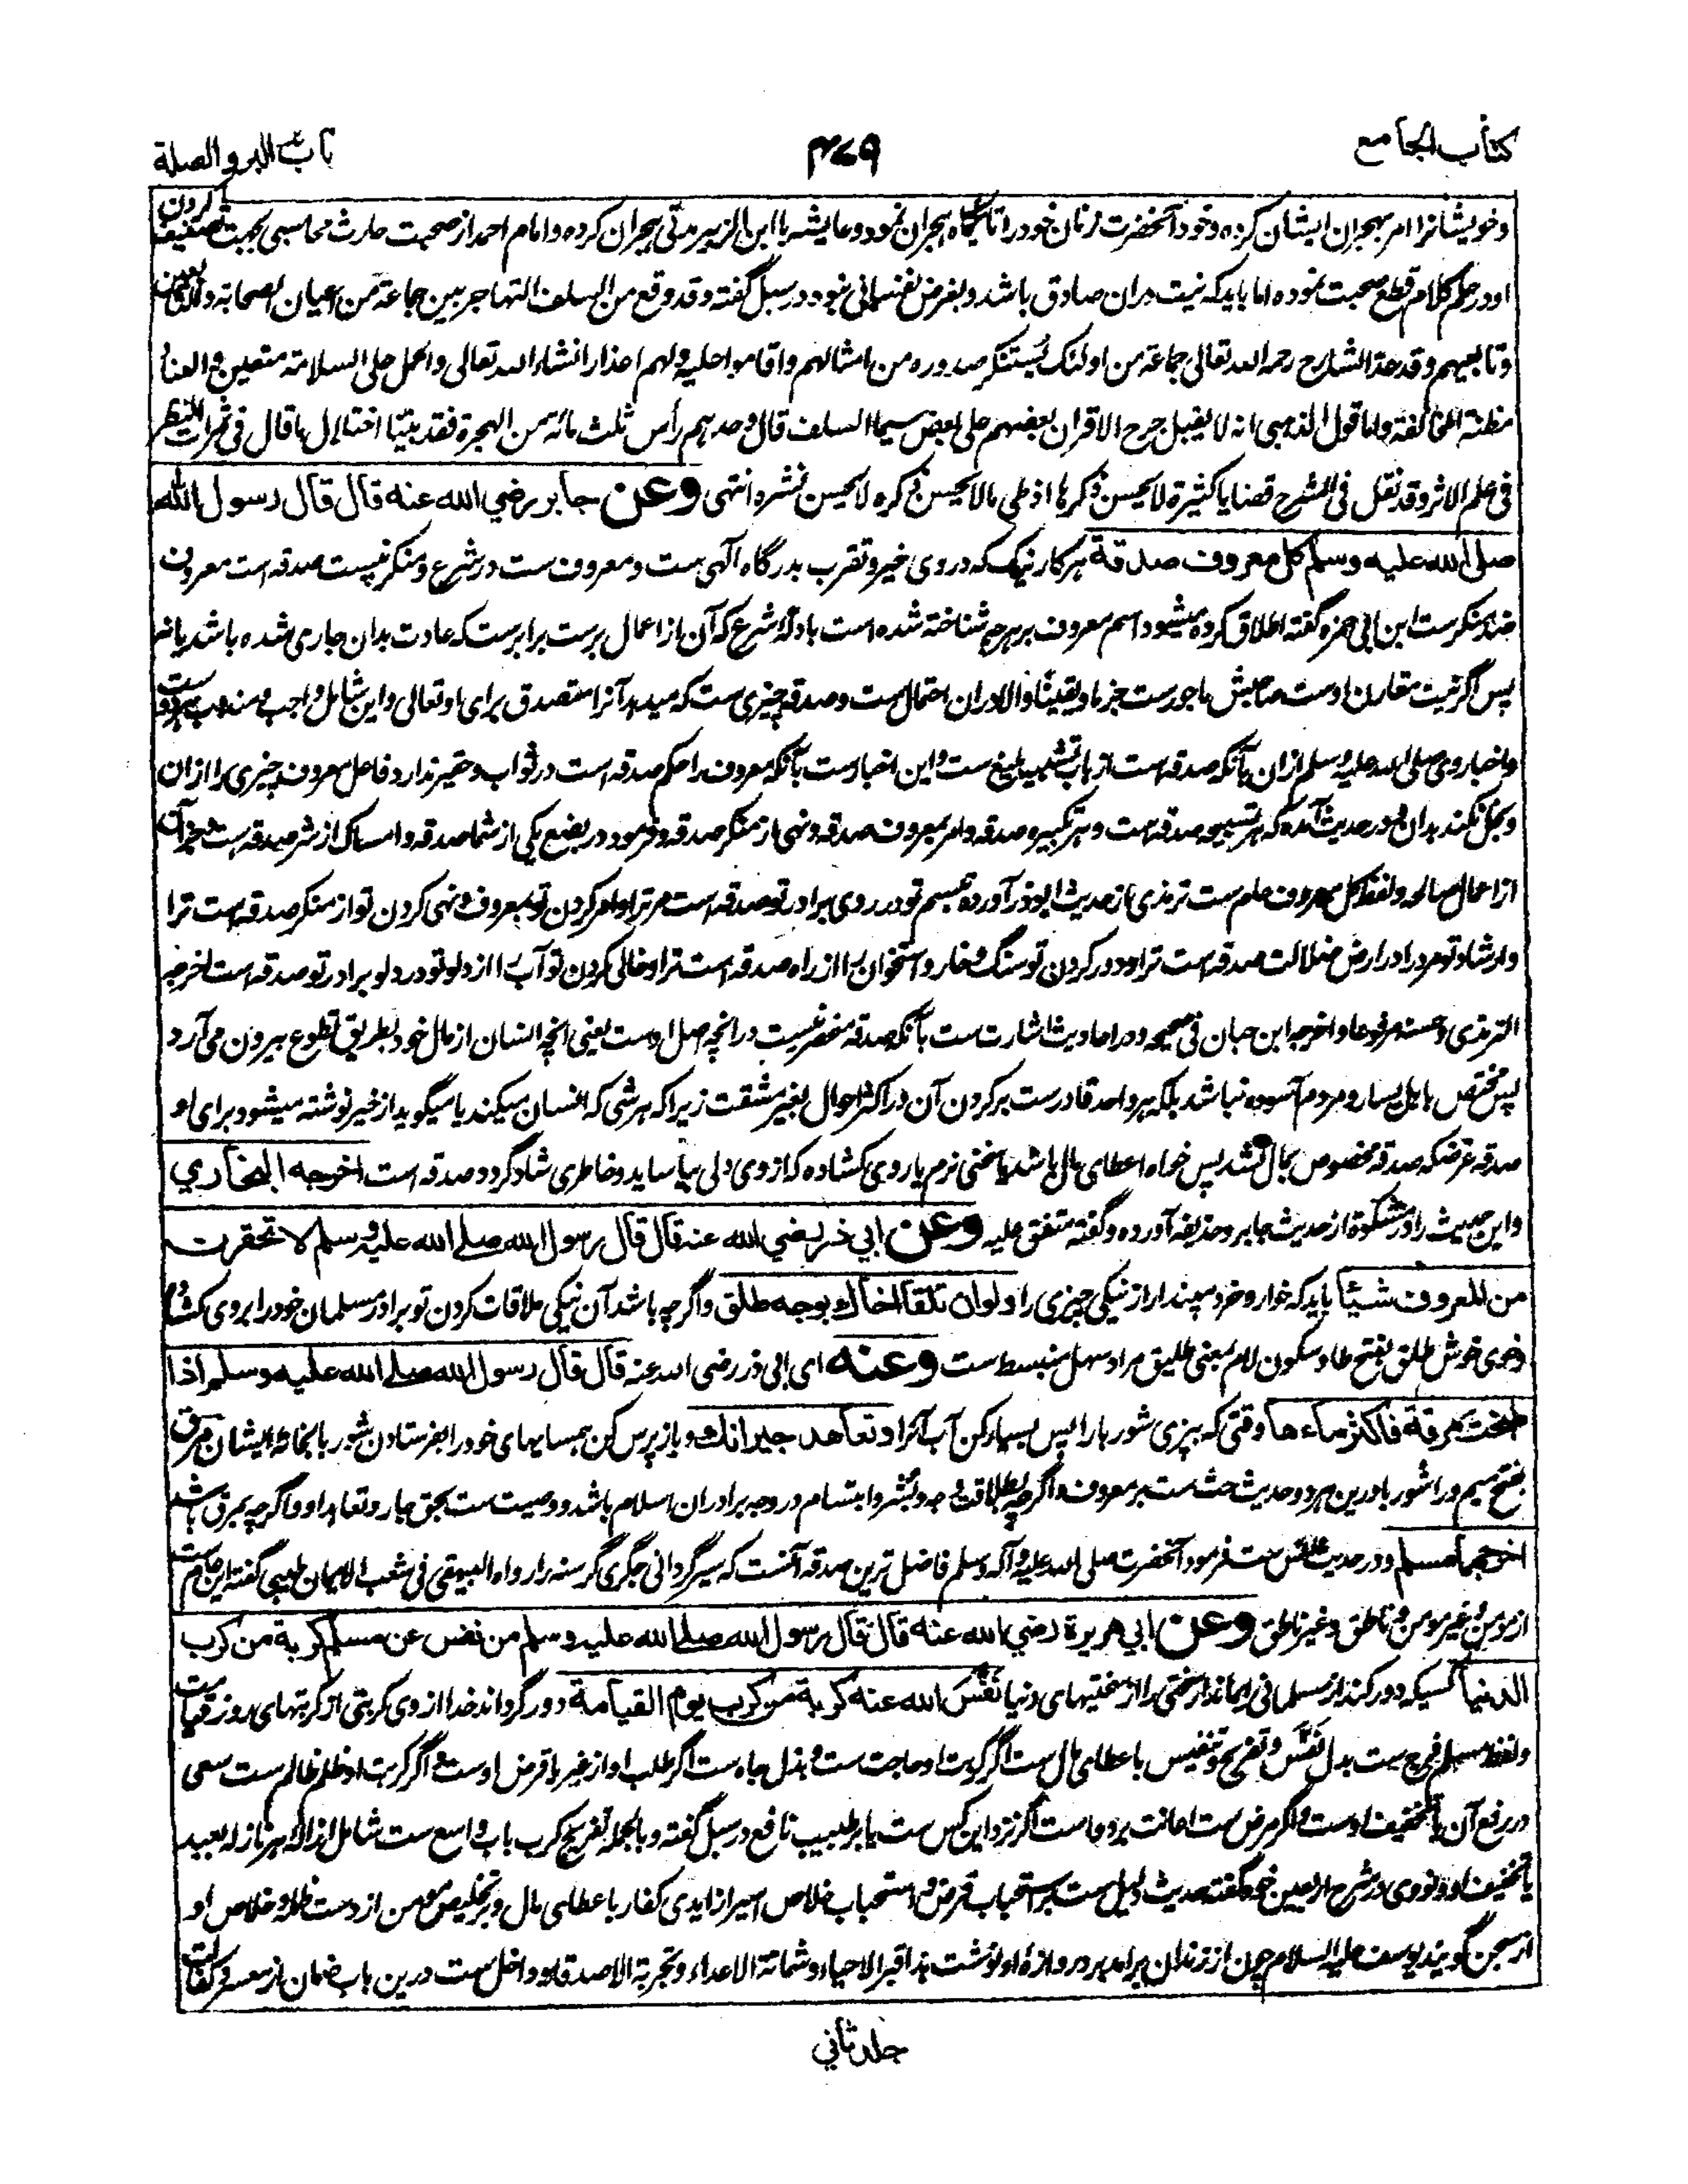 کتاب الجامع
۴۷۹
باب البر والصلة
وخویشانرا امر بهجران ایشان کرده وخود آنحضرت زنان خود را تا یکماه هجران نمود وعایشه با ابن الزبیر مدتی هجران کرده وامام احمد از صحبت حارث محاسبی بجهت تصنیف کردن
او در علم کلام قطع صحبت نموده اما باید که نیت دران صادق باشد وبغرض نفسانی نبود در سبل گفته وقد وقع من السلف التهاجر بین جماعة من اعیان الصحابة والتابعین
وتابعیهم وقد عد الشارح رحمه الله تعالی جماعة من اولئک یستنکر صدوره من امثالهم واقاموا علیه ولهم اعذار انشاء الله تعالی والحمل علی السلامة متعین والعباد
مظنة المخالفة واما قول الذهبی انه لا یقبل جرح الاقران بعضهم علی بعض سیما السلف قال وحدهم رأس ثلث مائة من الهجرة فقد بینا اختلال ما قال فی ثمرات النظر
فی علم الاثر وقد نقل فی الشرح قضایا کثیرة لا یحسن ذکرها اذ طی ما لا یحسن ذکره لا یحسن نشره انتهی وعن جابر رضي الله عنه قال قال رسول الله
صلى الله عليه وسلم كل معروف صدقة هر کار نیک که در وی خیر وتقرب بدرگاه الهی ست ومعروف ست در شرع ومنکر نیست صدقه است معروف
ضد منکرست ابن ابی جمره گفته اطلاق کرده میشود اسم معروف بر هرچه شناخته شده است بادلهٔ شرع که آن از اعمال برست برابرست که عادت بدان جاری شده باشد یا نه
پس اگر نیت مقارن اوست صاحبش ماجورست جزما ویقینا والا دران احتمال ست وصدقه چیزی ست که میدهد آنرا متصدق برای او تعالی واین شامل واجب ومندوب هر دو ست
واخبار وی صلی الله علیه وسلم ازان بآنکه صدقه است از باب تشبیه بلیغ ست واین اخبارست بآنکه معروف را حکم صدقه است در ثواب وحقیر ندارد فاعل معروف چیزی را ازان
وبخل نکند بدان ودر حدیث آمده که هر تسبیحه صدقه است وهر تکبیره صدقه وامر بمعروف صدقه ونهی از منکر صدقه وفرمود در بضع یکی از شما صدقه وامساک از شر صدقه است وجز آن
از اعمال صالحه ولفظ کل معروف عام ست ترمذی از حدیث ابوذر آورده تبسم تو در روی برادر تو صدقه است مر ترا وامر کردن تو بمعروف ونهی کردن تو از منکر صدقه است ترا
وارشاد تو مرد را در ارض ضلالت صدقه است ترا ودور کردن تو سنگ وخار واستخوان را از راه صدقه است ترا وخالی کردن تو آب را از دلو تو در دلو برادر تو صدقه است اخرجه
الترمذی وحسنه مرفوعا واخرجه ابن حبان فی صحیحه ودر احادیث اشارت ست بآنکه صدقه منحصر نیست در آنچه اصل اوست یعنی آنچه انسان از مال خود بطریق تطوع بیرون می آرد
پس مختص باهل یسار ومردم آسوده نباشد بلکه هر واحد قادرست بر کردن آن در اکثر احوال بغیر مشقت زیرا که هر شی که انسان میکند یا میگوید از خیر نوشته میشود برای او
صدقه غرضکه صدقه مخصوص بمال نشد پس خواه اعطای مال باشد یا سخنی نرم یا روی کشاده که از وی دلی بیاساید وخاطری شاد گردد صدقه است اخرجه البخاري
واین حدیث را در مشکوة از حدیث جابر وحذیفه آورده وگفته متفق علیه وعن ابي ذر رضي الله عنه قال قال رسول الله صلى الله عليه وسلم لا تحقرن
من المعروف شيئا باید که خوار وخرد مپندار از نیکی چیزی را ولو ان تلقا اخاك بوجه طلق واگرچه باشد آن نیکی ملاقات کردن تو برادر مسلمان خود را بروی کشاده
وخوی خوش طلق بفتح طا وسکون لام بمعنی طلیق مراد سهل منبسط ست وعنه ای ابی ذر رضی الله عنه قال قال رسول الله صلى الله عليه وسلم اذا
طبخت مرقة فاكثر ماءها وقتی که بپزی شوربا را پس بسیار کن آب آنرا وتعاهد جيرانك وبازپرس کن همسایهای خود را بفرستادن شوربا بخانهٔ ایشان مرق
بفتح میم ورا شوربا ودرین هر دو حدیث حث ست بر معروف واگرچه بطلاقت وجه وبشر وابتسام در وجه برادران اسلام باشد ووصیت ست بحق جار وتعاهد او واگرچه بمرق باشد
اخرجهما مسلم ودر حدیث انس ست فرمود آنحضرت صلی الله علیه وآله وسلم فاضل ترین صدقه آنست که سیر گردانی جگری گرسنه را رواه البیهقی فی شعب الایمان طیبی گفته این عام ست
از مومن وغیر مومن وناطق وغیر ناطق وعن ابي هريرة رضي الله عنه قال قال رسول الله صلى الله عليه وسلم من نفس عن مسلم كربة من كرب
الدنيا کسیکه دور کند از مسلمانی ایماندار سختی را از سختیهای دنیا نفس الله عنه كربة من كرب يوم القيامة دور گرداند خدا از وی کربتی از کربتهای روز قیامت
ولفظ مسلم فرج ست بدل نفس وتفریج وتنفیس باعطای مال ست اگر کربت او حاجت ست وبذل جاه ست اگر طلب او از غیر یا قرض اوست واگر کربت او ظلم ظالم ست سعی
در رفع آن یا تخفیف اوست واگر مرض ست اعانت بر دواست اگر نزد این کس ست یا بر طبیب نافع در سبل گفته وبالجمله تفریج کرب باب واسع ست شامل ازالهٔ هر نازله بعبد
یا تخفیف او ونووی در شرح اربعین خود گفته حدیث دلیل ست بر استحباب قرض واستحباب خلاص اسیر از ایدی کفار باعطای مال وبر تخلیص مومن از دست ظلمه وخلاص او
از سجن گویند یوسف علیه السلام چون از زندان برآمد بر دروازهٔ او نوشت هذا قبر الاحیاء وشماتة الاعداء وتجربة الاصدقاء وداخل ست درین باب ضمان از معسر وکفالت
جلد ثاني